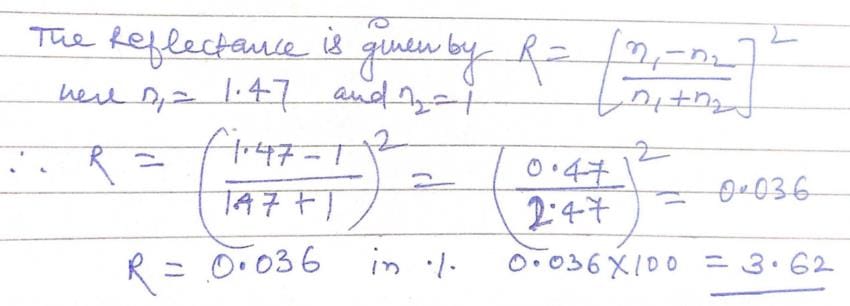 The Reflectance is given by R = [n₁-n₂ / n₁+n₂]²
here n₁ = 1.47 and n₂ = 1
∴ R = (1.47 - 1 / 1.47 + 1)² = (0.47 / 2.47)² = 0.036
R = 0.036 in % 0.036X100 = 3.62